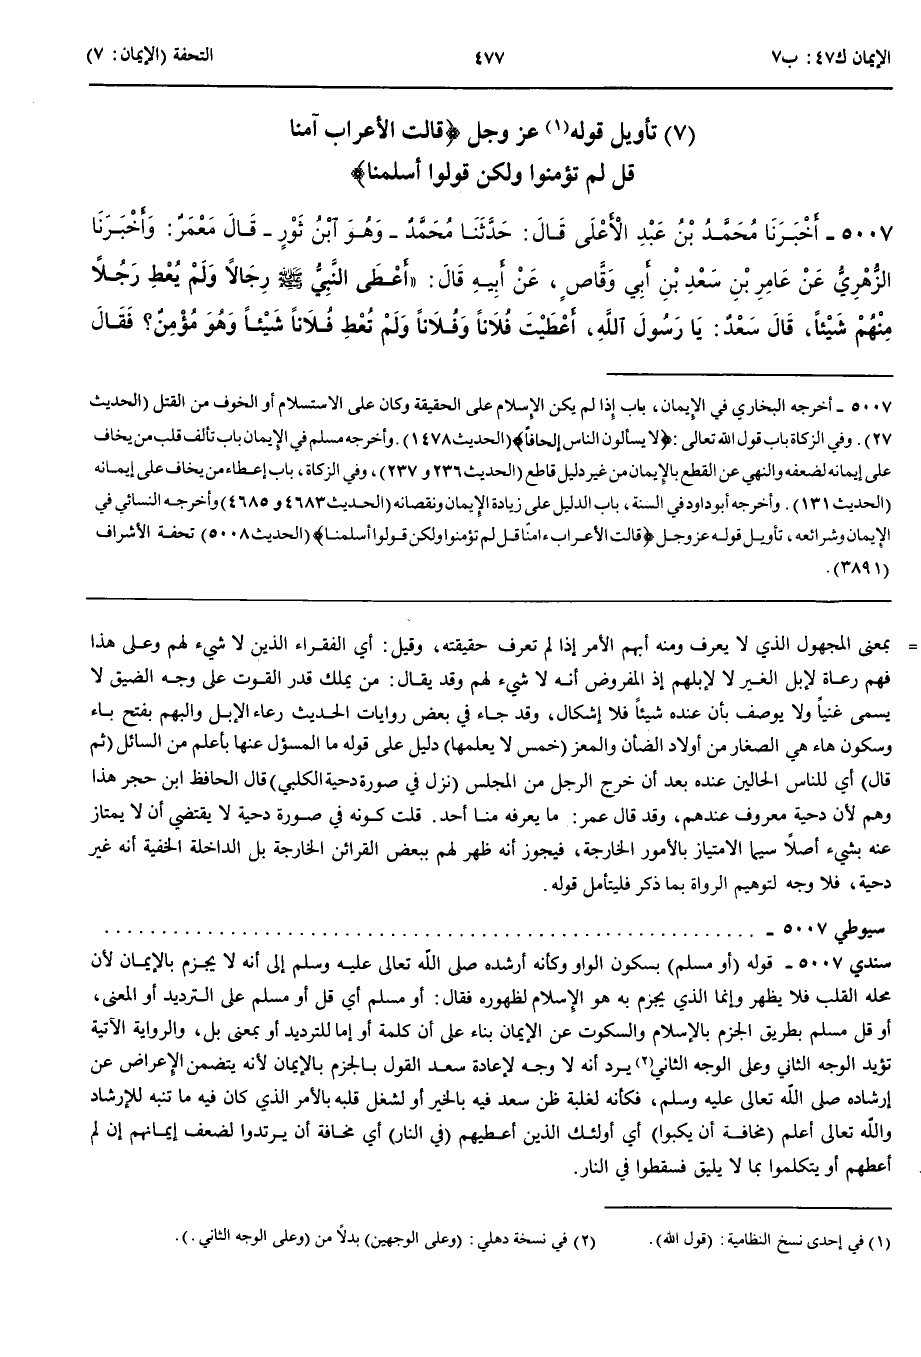 الإيمان ك٤٧: ب٧ ٤٧٧ التحفة (الإيمان: ٧)
(٧) تأويل قوله(١) عز وجل ﴿قالت الأعراب آمنا
قل لم تؤمنوا ولكن قولوا أسلمنا﴾
٥٠٠٧ ـ أَخْبَرَنَا مُحَمَّدُ بْنُ عَبْدِ الْأَعْلَى قَالَ: حَدَّثَنَا مُحَمَّدٌ ـ وَهُوَ ٱبْنُ ثَوْرٍ ـ قَالَ مَعْمَرٌ: وَأَخْبَرَنَا
الزُّهْرِيُّ عَنْ عَامِرِ بْنِ سَعْدِ بْنِ أَبِي وَقَّاصٍ، عَنْ أَبِيهِ قَالَ: «أَعْطَى النَّبِيُّ ﷺ رِجَالاً وَلَمْ يُعْطِ رَجُلاً
مِنْهُمْ شَيْئاً، قَالَ سَعْدٌ: يَا رَسُولَ ٱللَّهِ، أَعْطَيْتَ فُلَاناً وَفُلَاناً وَلَمْ تُعْطِ فُلَاناً شَيْئاً وَهُوَ مُؤْمِنٌ؟ فَقَالَ
٥٠٠٧ ـ أخرجه البخاري في الإيمان، باب إذا لم يكن الإسلام على الحقيقة وكان على الاستسلام أو الخوف من القتل (الحديث
٢٧). وفي الزكاة باب قول الله تعالى: ﴿لا يسألون الناس إلحافاً﴾ (الحديث ١٤٧٨). وأخرجه مسلم في الإيمان باب تألف قلب من يخاف
على إيمانه لضعفه والنهي عن القطع بالإيمان من غير دليل قاطع (الحديث ٢٣٦ و ٢٣٧)، وفي الزكاة، باب إعطاء من يخاف على إيمانه
(الحديث ١٣١). وأخرجه أبو داود في السنة، باب الدليل على زيادة الإيمان ونقصانه (الحديث ٤٦٨٣ و ٤٦٨٥) وأخرجه النسائي في
الإيمان وشرائعه، تأويل قوله عز وجل ﴿قالت الأعراب ءامنا قل لم تؤمنوا ولكن قولوا أسلمنا﴾ (الحديث ٥٠٠٨) تحفة الأشراف
(٣٨٩١).
= بمعنى المجهول الذي لا يعرف ومنه أبهم الأمر إذا لم تعرف حقيقته، وقيل: أي الفقراء الذين لا شيء لهم وعلى هذا
فهم رعاة لإبل الغير لا لإبلهم إذ المفروض أنه لا شيء لهم وقد يقال: من يملك قدر القوت على وجه الضيق لا
يسمى غنياً ولا يوصف بأن عنده شيئاً فلا إشكال، وقد جاء في بعض روايات الحديث رعاء الإبل والبهم بفتح باء
وسكون هاء هي الصغار من أولاد الضأن والمعز (خمس لا يعلمها) دليل على قوله ما المسؤل عنها بأعلم من السائل (ثم
قال) أي للناس الحالين عنده بعد أن خرج الرجل من المجلس (نزل في صورة دحية الكلبي) قال الحافظ ابن حجر هذا
وهم لأن دحية معروف عندهم، وقد قال عمر: ما يعرفه منا أحد. قلت كونه في صورة دحية لا يقتضي أن لا يمتاز
عنه بشيء أصلاً سيما الامتياز بالأمور الخارجة، فيجوز أنه ظهر لهم ببعض القرائن الخارجة بل الداخلة الخفية أنه غير
دحية، فلا وجه لتوهيم الرواة بما ذكر فليتأمل قوله.
سيوطي ٥٠٠٧ ـ . . . . . . . . . . . . . . . . . . . . . . . . . . . . . . . . . . . . . . . . . . . . . . . . . . .
سندي ٥٠٠٧ ـ قوله (أو مسلم) بسكون الواو وكأنه أرشده صلى الله تعالى عليه وسلم إلى أنه لا يجزم بالإيمان لأن
محله القلب فلا يظهر وإنما الذي يجزم به هو الإسلام لظهوره فقال: أو مسلم أي قل أو مسلم على الترديد أو المعنى،
أو قل مسلم بطريق الجزم بالإسلام والسكوت عن الإيمان بناء على أن كلمة أو إما للترديد أو بمعنى بل، والرواية الآتية
تؤيد الوجه الثاني وعلى الوجه الثاني(٢) يرد أنه لا وجه لإعادة سعد القول بالجزم بالإيمان لأنه يتضمن الإعراض عن
إرشاده صلى الله تعالى عليه وسلم، فكأنه لغلبة ظن سعد فيه بالخير أو لشغل قلبه بالأمر الذي كان فيه ما تنبه للإرشاد
والله تعالى أعلم (مخافة أن يكبوا) أي أولئك الذين أعطيهم (في النار) أي مخافة أن يرتدوا لضعف إيمانهم إن لم
أعطهم أو يتكلموا بما لا يليق فسقطوا في النار.
(١) في إحدى نسخ النظامية: (قول الله). (٢) في نسخة دهلي: (وعلى الوجهين) بدلًا من (وعلى الوجه الثاني.).